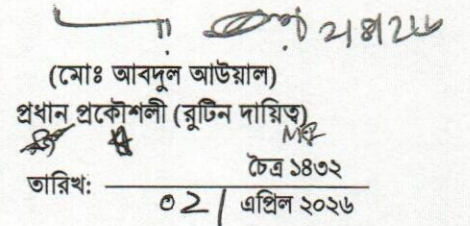 ২/৪/২৬
(মোঃ আবদুল আউয়াল)
প্রধান প্রকৌশলী (রুটিন দায়িত্ব)
চৈত্র ১৪৩২
তারিখ:
০২/ এপ্রিল ২০২৬